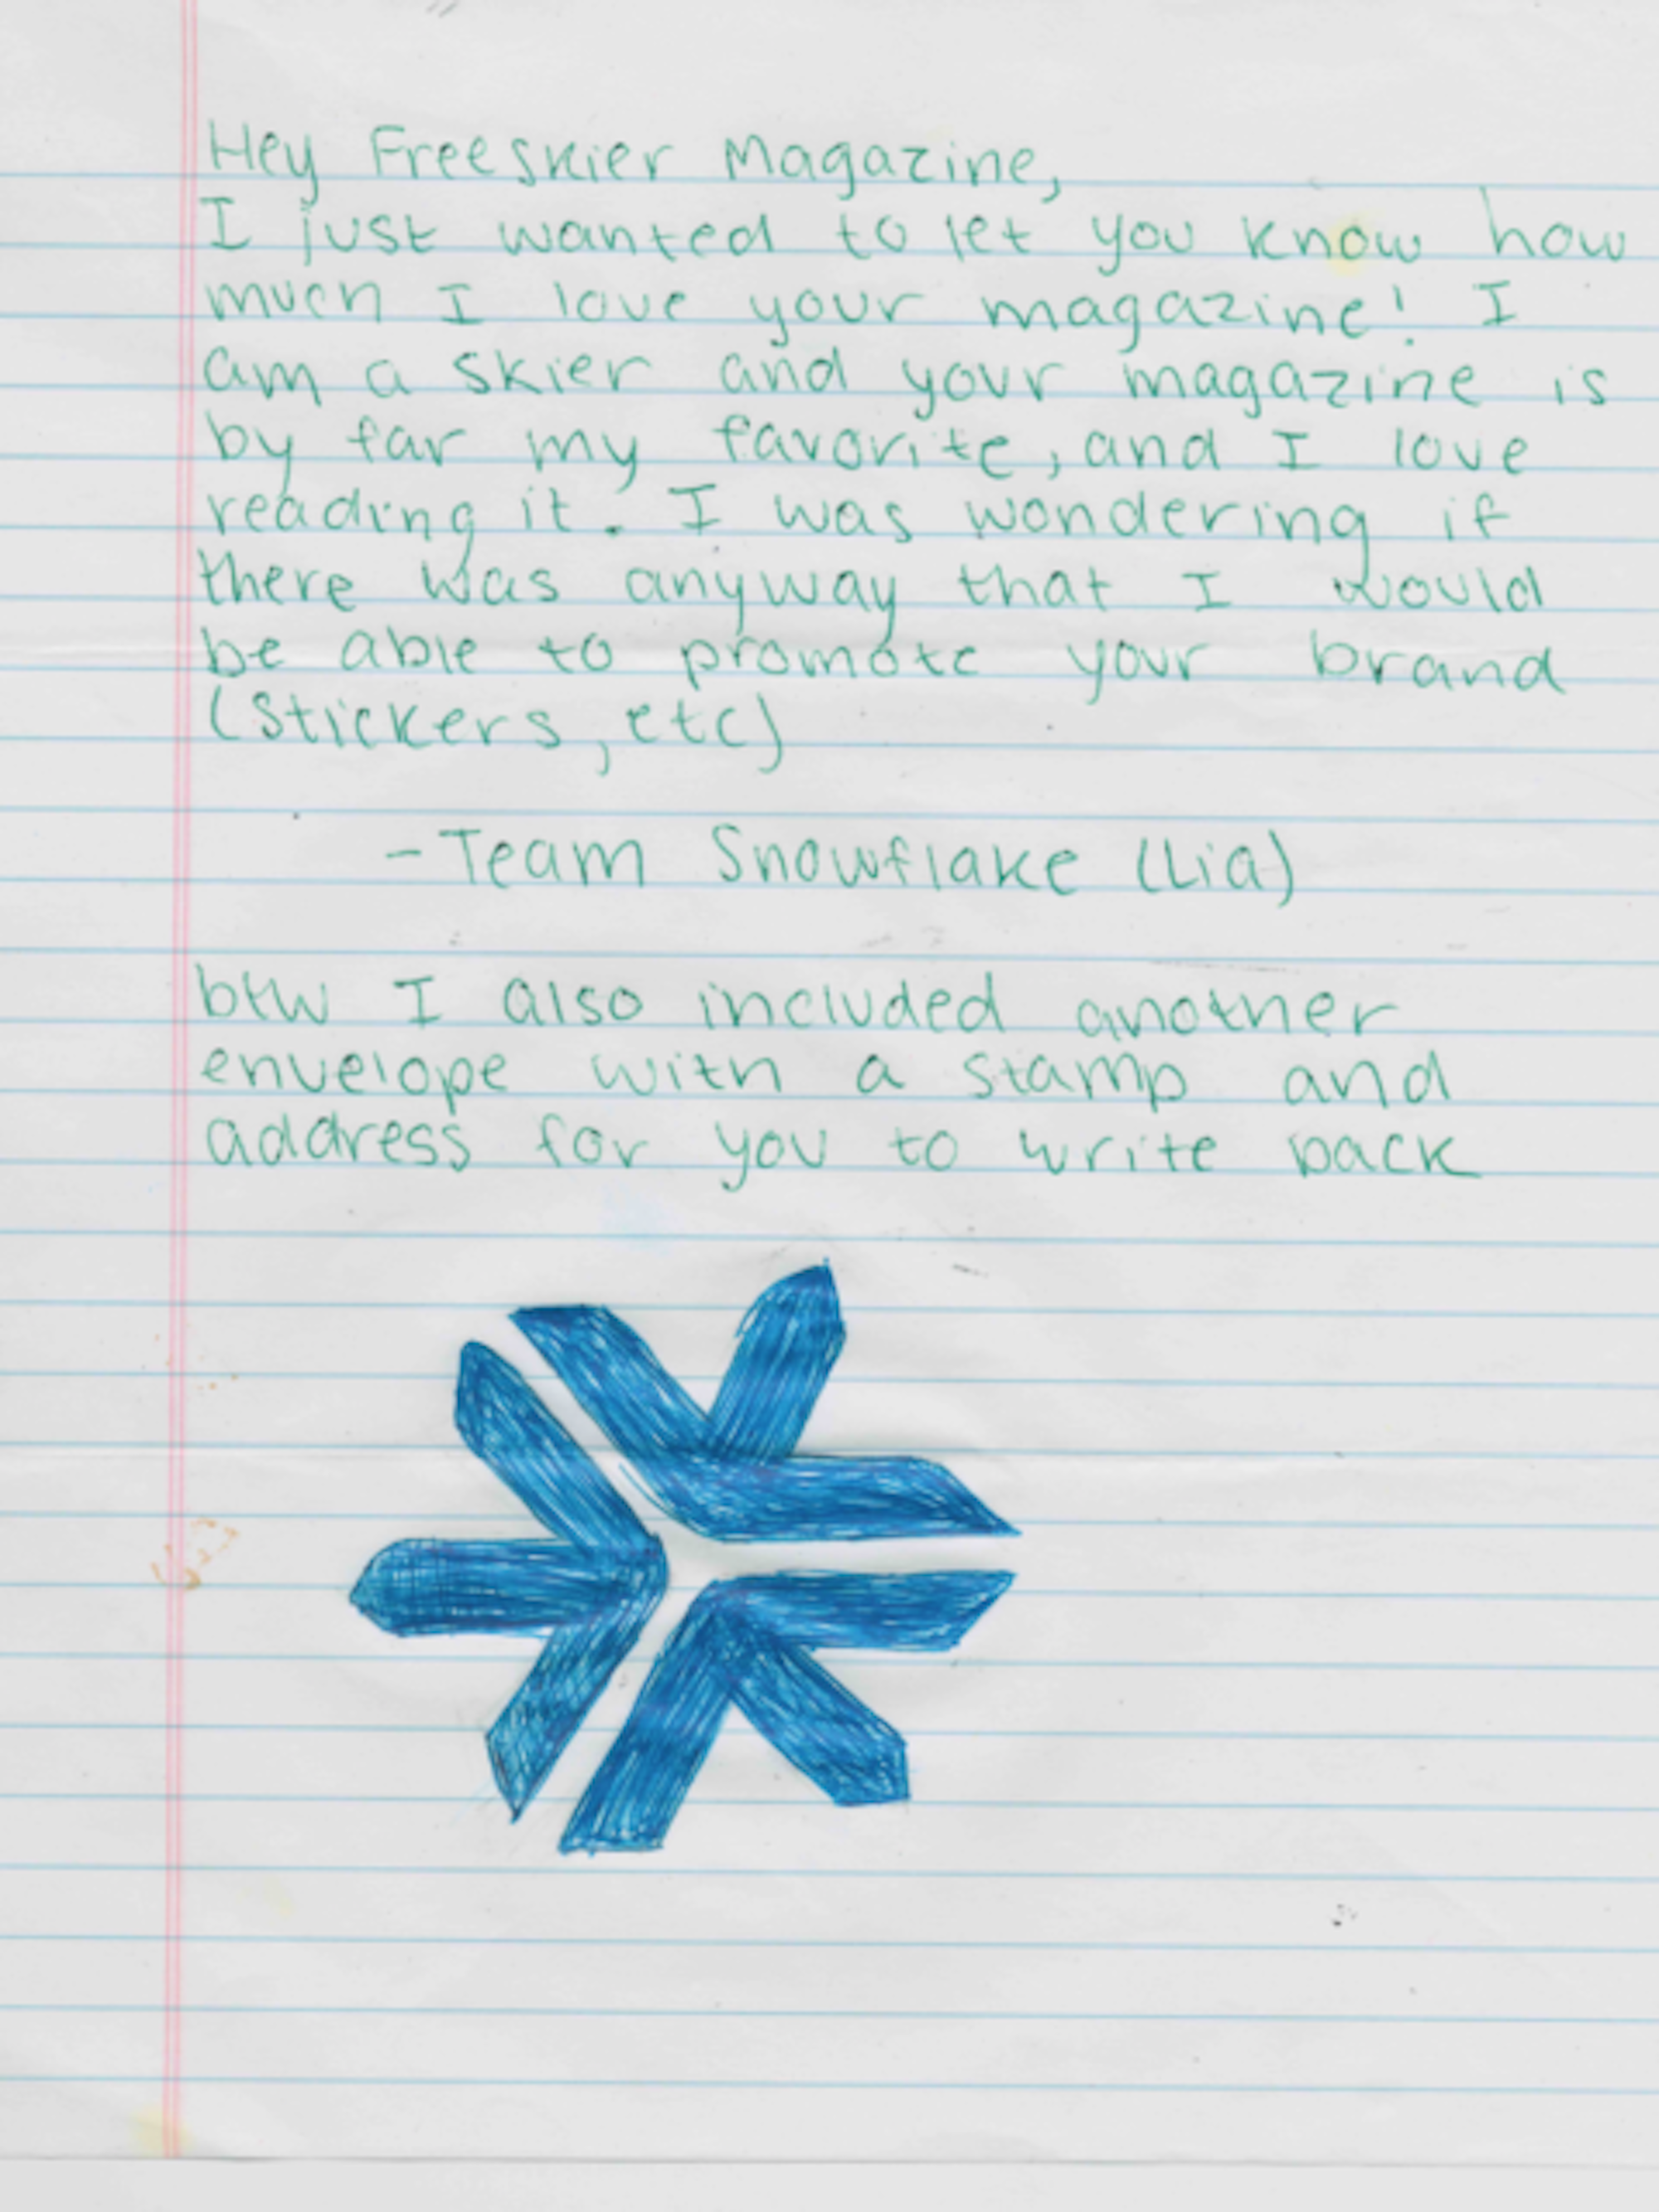 Hey Freeskier Magazine,
I just wanted to let you know how
much I love your magazine! I
am a skier and your magazine is
by far my favorite, and I love
reading it. I was wondering if
there was anyway that I would
be able to promote your brand
(stickers, etc)
-Team Snowflake (Lia)
btw I also included another
envelope with a stamp and
address for you to write back